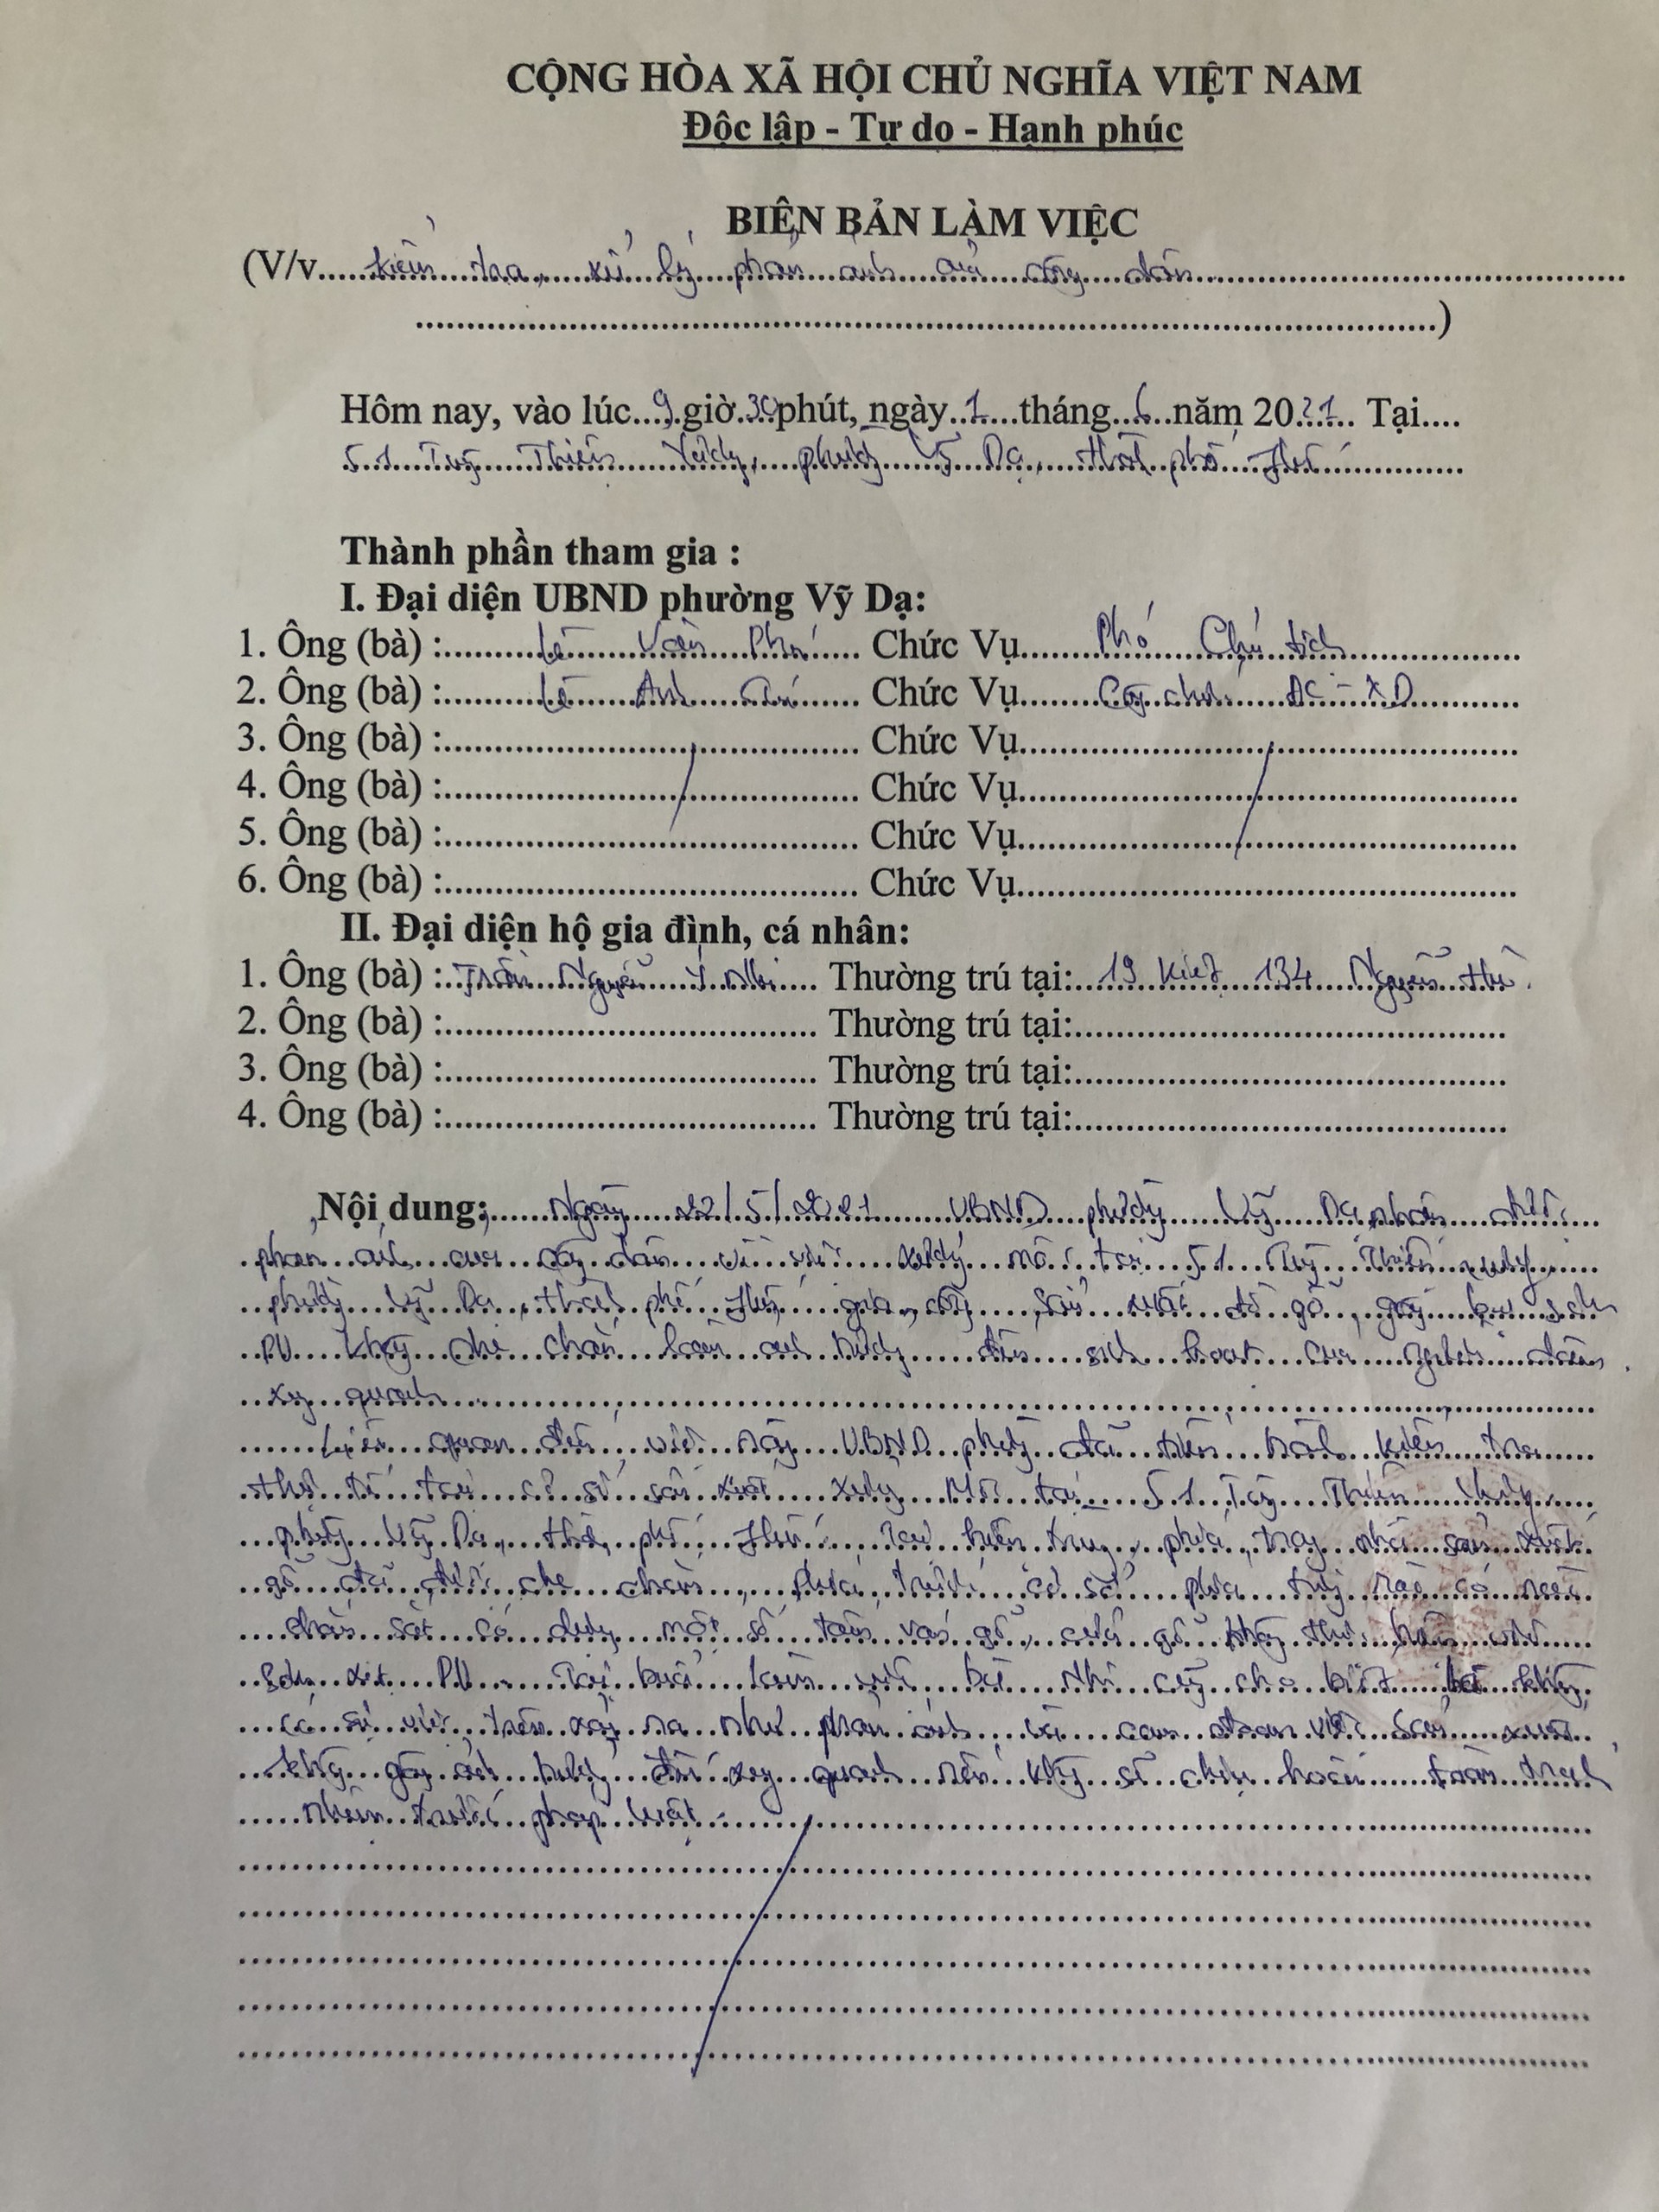 CỘNG HÒA XÃ HỘI CHỦ NGHĨA VIỆT NAM
Độc lập - Tự do - Hạnh phúc
BIÊN BẢN LÀM VIỆC
(V/v.....kiểm tra, xử lý phản ánh của công dân..........
..........)
Hôm nay, vào lúc..9.giờ.30phút, ngày..1...tháng..6..năm 20.21.. Tại....
51 Tuỳ Thiên Vương, phường Vỹ Dạ, thành phố Huế
Thành phần tham gia :
I. Đại diện UBND phường Vỹ Dạ:
1. Ông (bà) :.....Lê Văn ..... Chức Vụ.....Phó Chủ tịch.....
2. Ông (bà) :.....Lê Anh ..... Chức Vụ.....Công chức ĐC - XD.....
3. Ông (bà) :.......... Chức Vụ..........
4. Ông (bà) :.......... Chức Vụ..........
5. Ông (bà) :.......... Chức Vụ..........
6. Ông (bà) :.......... Chức Vụ..........
II. Đại diện hộ gia đình, cá nhân:
1. Ông (bà) :..Trần Nguyễn Ý Nhi..... Thường trú tại:..19 Kiệt 134 Nguyễn
2. Ông (bà) :.......... Thường trú tại:..........
3. Ông (bà) :.......... Thường trú tại:..........
4. Ông (bà) :.......... Thường trú tại:..........
Nội dung:.....Ngày 22/5/2021 UBND phường Vỹ Dạ nhận được
phản ánh của công dân về việc xưởng mộc tại 51 Tuỳ Thiên Vương
phường Vỹ Dạ, thành phố Huế gia công, sản xuất đồ gỗ, gây bụi sơn
PU không che chắn làm ảnh hưởng đến sinh hoạt của người dân
xung quanh
Liên quan đến việc này UBND phường đã tiến hành kiểm tra
thực tế tại cơ sở sản xuất xưởng Mộc tại 51 Tuỳ Thiên Vương
phường Vỹ Dạ, thành phố Huế. Tại hiện trường, phía trong nhà sản xuất
gỗ đã được che chắn, phía trước cơ sở phía
sắt có dựng một số tấm ván gỗ, cửa gỗ không thực hiện việc
sơn xịt PU. Tại buổi làm việc, bà Nhi cũng cho biết bà không
có sự việc trên xảy ra như phản ánh, và cam đoan việc sản xuất
không gây ảnh hưởng đến xung quanh nếu không sẽ chịu hoàn toàn trách
nhiệm trước pháp luật.